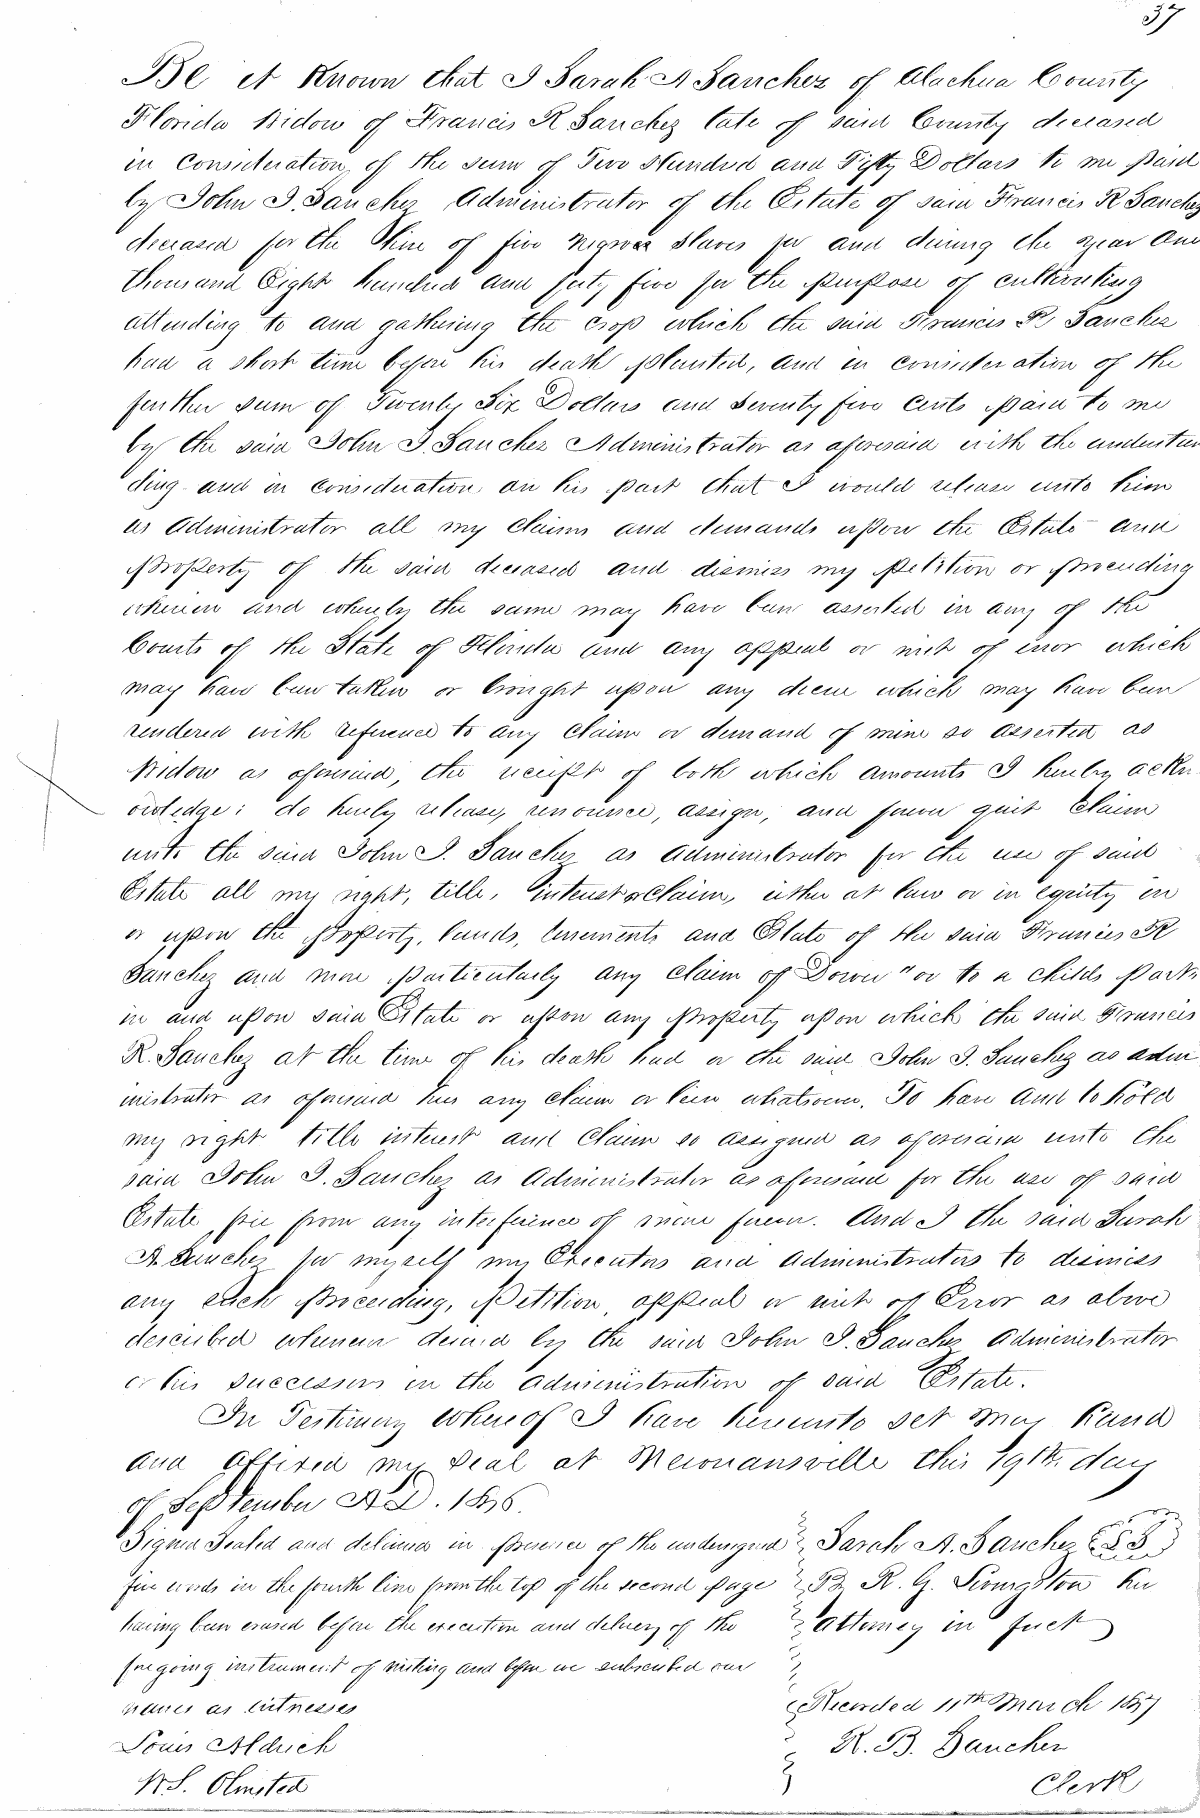 37
Be it Known that I Sarah A Sanchez of Alachua County
Florida Widow of Francis R Sanchez late of said County deceased
in consideration of the sum of Two Hundred and Fifty Dollars to me paid
by John J. Sanchez Administrator of the Estate of said Francis R Sanchez
deceased for the Hire of five negroes slaves for and during the year One
thousand Eight hundred and forty five for the purpose of cultivating
attending to and gathering the crop which the said Francis R Sanchez
had a short time before his death planted, and in consideration of the
further sum of Twenty Six Dollars and Seventy five cents paid to me
by the said John J. Sanchez Administrator as aforesaid with the understan
ding and in consideration on his part that I would release unto him
as Administrator all my claims and demands upon the Estate and
property of the said deceased and dismiss my petition or proceeding
wherein and whereby the same may have been asserted in any of the
Courts of the State of Florida and any appeal or writ of error which
may have been taken or brought upon any decree which may have been
rendered with reference to any claim or demand of mine so asserted as
Widow as aforesaid, the receipt of both which amounts I hereby ackn
owledge: do hereby release, renounce, assign, and forever quit claim
unto the said John J. Sanchez as Administrator for the use of said
Estate all my right, title, interest or claim, either at law or in equity in
or upon the property, lands, tenements and Estate of the said Francis R
Sanchez and more particularly any claim of Dower "or to a childs part
in and upon said Estate or upon any property upon which the said Francis
R. Sanchez at the time of his death had or the said John J. Sanchez as adm
inistrator as aforesaid has any claim or lien whatsoever. To have and to hold
my right title interest and claim so assigned as aforesaid unto the
said John J. Sanchez as Administrator as aforesaid for the use of said
Estate free from any interference of mine forever. And I the said Sarah
A. Sanchez for myself my Executors and Administrators to dismiss
any such proceeding, petition, appeal or writ of Error as above
described whenever desired by the said John J. Sanchez Administrator
or his successors in the administration of said Estate.
In Testimony whereof I have hereunto set my hand
and affixed my seal at Newnansville this 19th day
of September A.D. 1856.
Signed Sealed and delivered in presence of the undersigned Sarah A. Sanchez
five words in the fourth line from the top of the second page By R. G. Livingston her
having been erased before the execution and delivery of the attorney in fact
foregoing instrument of writing and before we subscribed our
names as witnesses Recorded 11th March 1857
Louis Aldrich R. B. Sanchez
W S. Olmsted Clerk